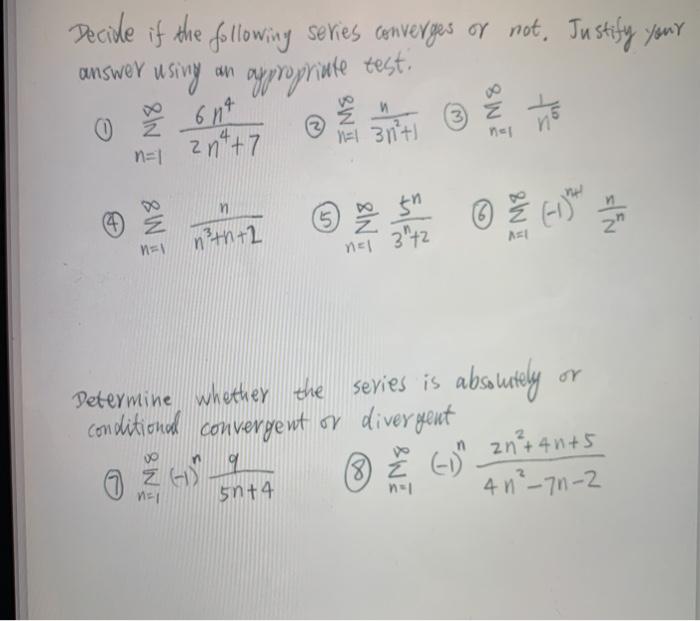 Decide if the following series converges or not. Justify your
answer using an appropriate test.
① ∞ Σ n=1 6n⁴ / 2n⁴+7 ② ∞ Σ n=1 n / 3n²+1 ③ ∞ Σ n=1 1 / n⁵
④ ∞ Σ n=1 n / n³+n+2 ⑤ ∞ Σ n=1 5ⁿ / 3ⁿ+2 ⑥ ∞ Σ n=1 (-1)ⁿ⁺¹ n / 2ⁿ
Determine whether the series is absolutely or
conditional convergent or divergent
⑦ ∞ Σ n=1 (-1)ⁿ 9 / 5n+4 ⑧ ∞ Σ n=1 (-1)ⁿ 2n²+4n+5 / 4n²-7n-2